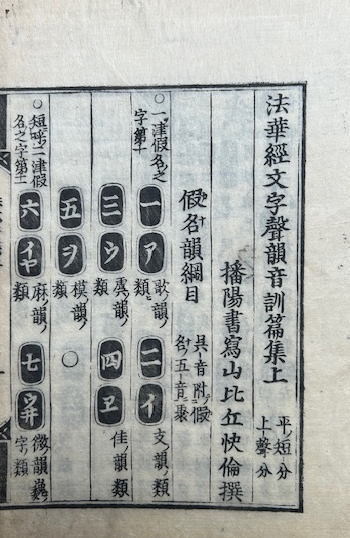 法華經文字聲韻音訓篇集上
平ノ短ノ分
上ノ聲ノ分
播陽書寫山比丘快倫撰
假名韻綱目
○一津假名之
字第一
一
ア
歌ノ韻ノ
類ヒ
二
イ
支ノ韻ノ類
三
ウ
虞ノ韻ノ
類
四
ヱ
佳ノ韻ノ類
五
ヲ
模ノ韻ノ
類
○
○短呼二津假
名之字第二
六
イヤ
麻ノ韻ノ
類
七
ウ井
微ノ韻
字ノ類